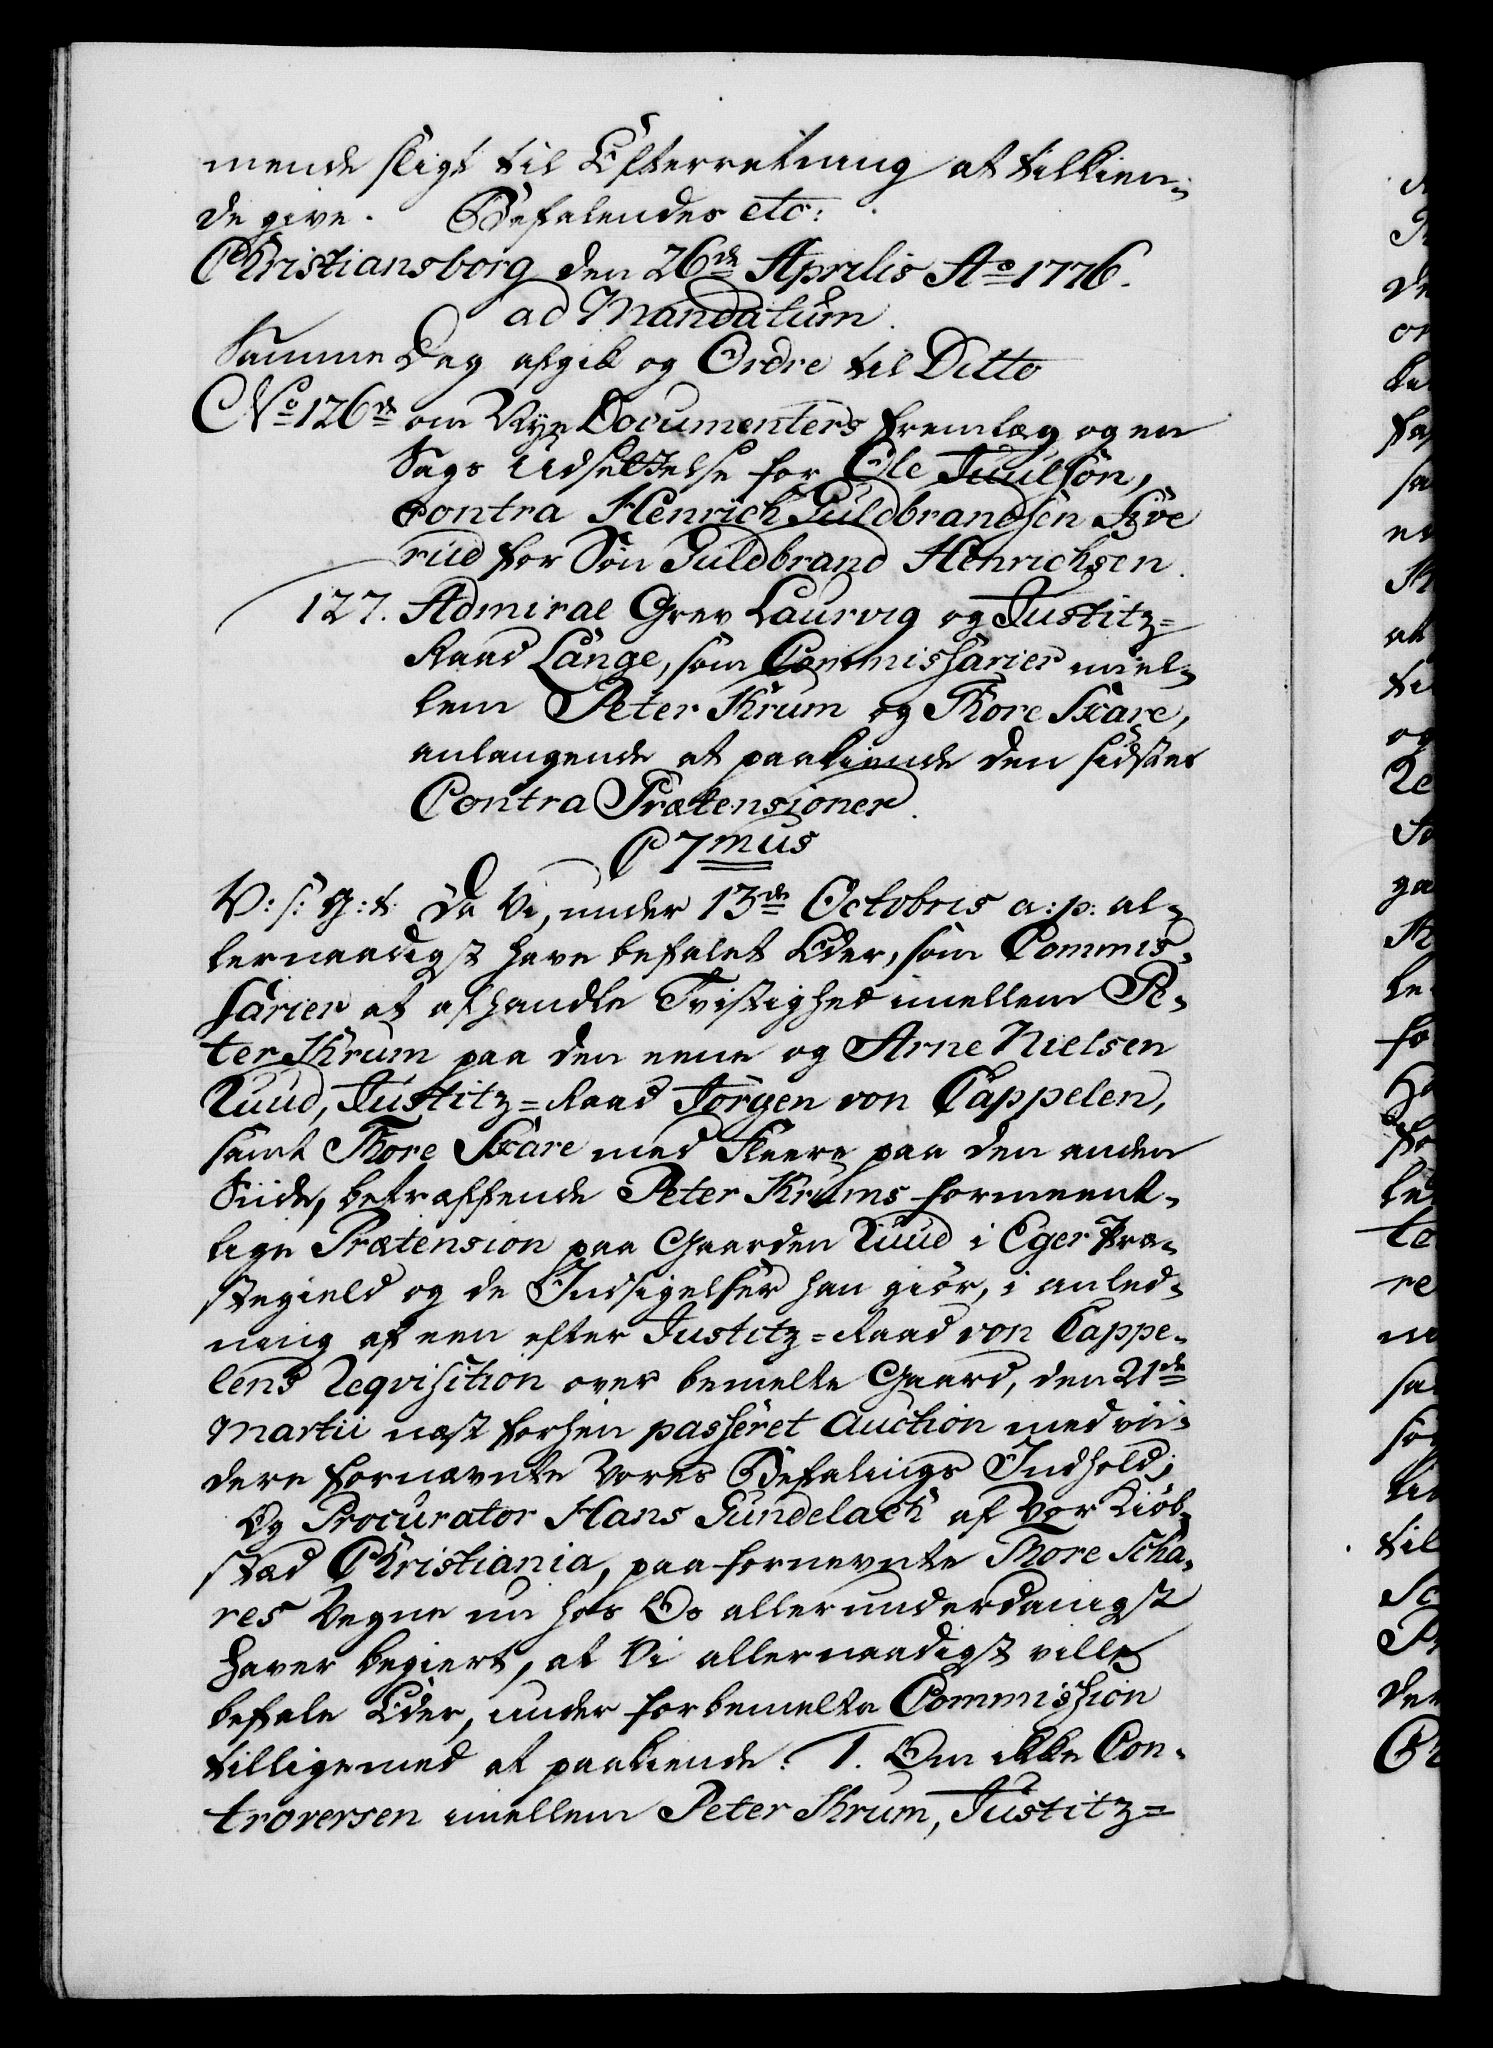 mende sligt til Efterretning at tilkien-
de give. Befalendes etc:
Christiansborg den 26de Aprilis Ao 1776.
ad Mandatum.
Samme Dag afgik og Ordre til Ditto
No 126de om Nye Documenters fremlæg og en
Sags Udsettelse for Ole Juulsön,
contra Henrich Guldbrandsen
rud for Sön Guldbrand Henrichsen.
127. Admiral Grev Laurvig og Justitz=
Raad Lange, som Commissarier miel-
lem Peter Krum og Thore Scare,
anlangende at paakiende den sidstes
Contra Prætensioner.
C 7mus
V: s: G: t: Da Vi, under 13de Octobris a: p: al-
lernaadigst have befalet Eder, som Commis-
sarier at afhandle Tvistighed imellem Pe-
ter Krum paa den eene og Arne Nielsen
Ruud, Justitz=Raad Jörgen von Cappelen,
samt Thore Scare med Fleere paa den anden
Siide, betræffende Peter Krums formeent-
lige Prætension paa Gaarden Ruud i Eger Præ-
stegield og de Indsigelser han giör, i anled-
ning af een efter Justitz=Raad von Cappe-
lens Reqvisition over bemelte Gaard, den 21de
Martii næst forhen passeret Auction med vii-
dere fornævnte Vores Befalings Indhold;
Og Procurator Hans Gundelach af Vor Kiöb-
stæd Christiania, paa fornevnte Thore Scha-
res Vegne nu hos Os allerunderdanigst
haver begiert, at Vi allernaadigst ville
befale Eder, under forbemelte Commission
tilligemed at paakiende: 1. Om ikke Con-
troversen imellem Peter Krum, Justitz=